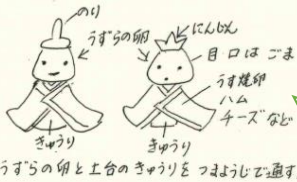 のり
うずらの卵
にんじん
目口はごま
うす焼卵
ハム
チーズなど
きゅうり
きゅうり
うずらの卵と土台のきゅうりをつまようじで通す